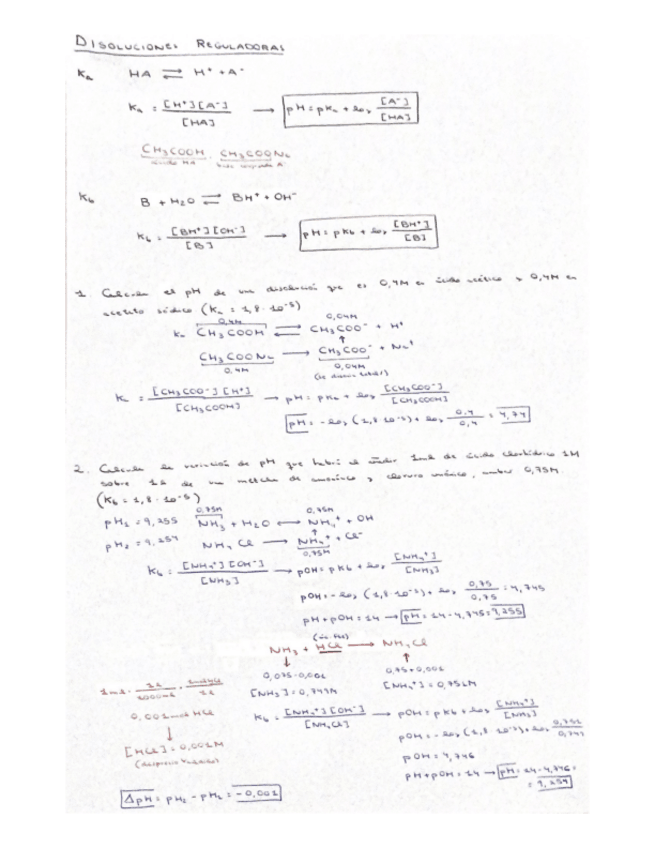 DISOLUCIONES REGULADORAS
Ka HA ⇌ H⁺ + A⁻
Ka = [H⁺][A⁻] / [HA] → pH = pKa + log [A⁻] / [HA]
CH₃COOH, CH₃COONa
ácido HA base conjugada A⁻
Kb B + H₂O ⇌ BH⁺ + OH⁻
Kb = [BH⁺][OH⁻] / [B] → pH = pKb + log [BH⁺] / [B]
1. Calcula el pH de una disolución que es 0,4M en ácido acético y 0,4M en
acetato sódico (Ka = 1,8·10⁻⁵)
0,4M 0,04M
Ka CH₃COOH ⇌ CH₃COO⁻ + H⁺
CH₃COONa → CH₃COO⁻ + Na⁺
0,4M 0,04M
K = [CH₃COO⁻][H⁺] / [CH₃COOH] → pH = pKa + log [CH₃COO⁻] / [CH₃COOH]
pH = -log (1,8·10⁻⁵) + log 0,4 / 0,4 = 4,74
2. Calcula la variación de pH que habrá al añadir 1mL de ácido clorhídrico 1M
sobre 1L de una mezcla de amoníaco y cloruro amónico, ambos 0,75M.
(Kb = 1,8·10⁻⁵)
0,75M 0,75M
pH₁ = 9,255 NH₃ + H₂O ⟷ NH₄⁺ + OH
pH₂ = 9,254 NH₄Cl → NH₄⁺ + Cl⁻
0,75M
Kb = [NH₄⁺][OH⁻] / [NH₃] → pOH = pKb + log [NH₄⁺] / [NH₃]
pOH = -log (1,8·10⁻⁵) + log 0,75 / 0,75 = 4,745
pH + pOH = 14 → pH = 14 - 4,745 = 9,255
NH₃ + HCl → NH₄Cl
0,075-0,001 0,75+0,001
1mL · 1L / 1000mL · 1molHCl / 1L [NH₃] = 0,749M [NH₄⁺] = 0,751M
0,001mol HCl Kb = [NH₄⁺][OH⁻] / [NH₄Cl] → pOH = pKb + log [NH₄⁺] / [NH₃]
pOH = -log (1,8·10⁻⁵) + log 0,751 / 0,749
[HCl] = 0,001M pOH = 4,746
pH + pOH = 14 → pH = 14 - 4,746 =
= 9,254
ΔpH = pH₂ - pH₁ = -0,001